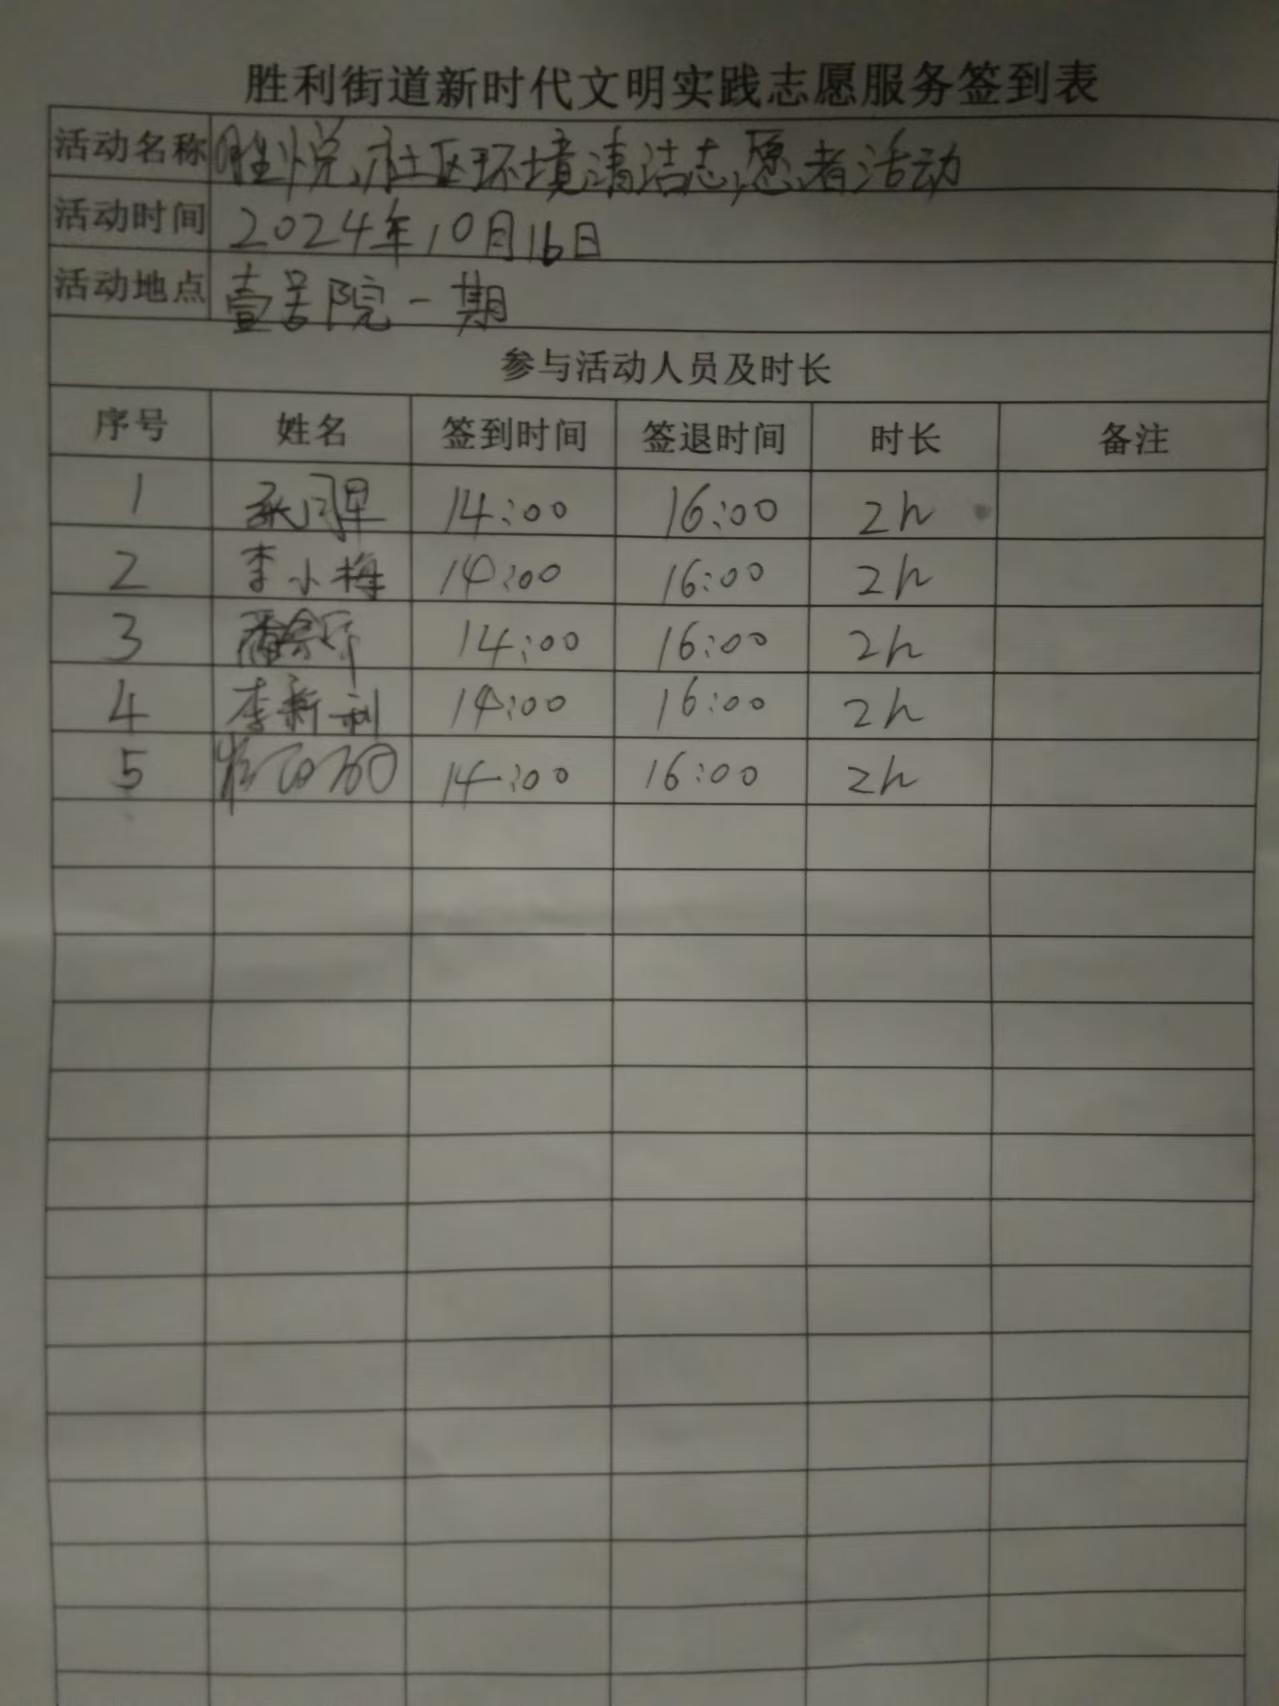 胜利街道新时代文明实践志愿服务签到表
活动名称 胜悦社区环境清洁志愿者活动
活动时间 2024年10月16日
活动地点 壹号院一期
参与活动人员及时长
序号 姓名 签到时间 签退时间 时长 备注
1 14:00 16:00 2h
2 李小梅 14:00 16:00 2h
3 14:00 16:00 2h
4 李新利 14:00 16:00 2h
5 14:00 16:00 2h